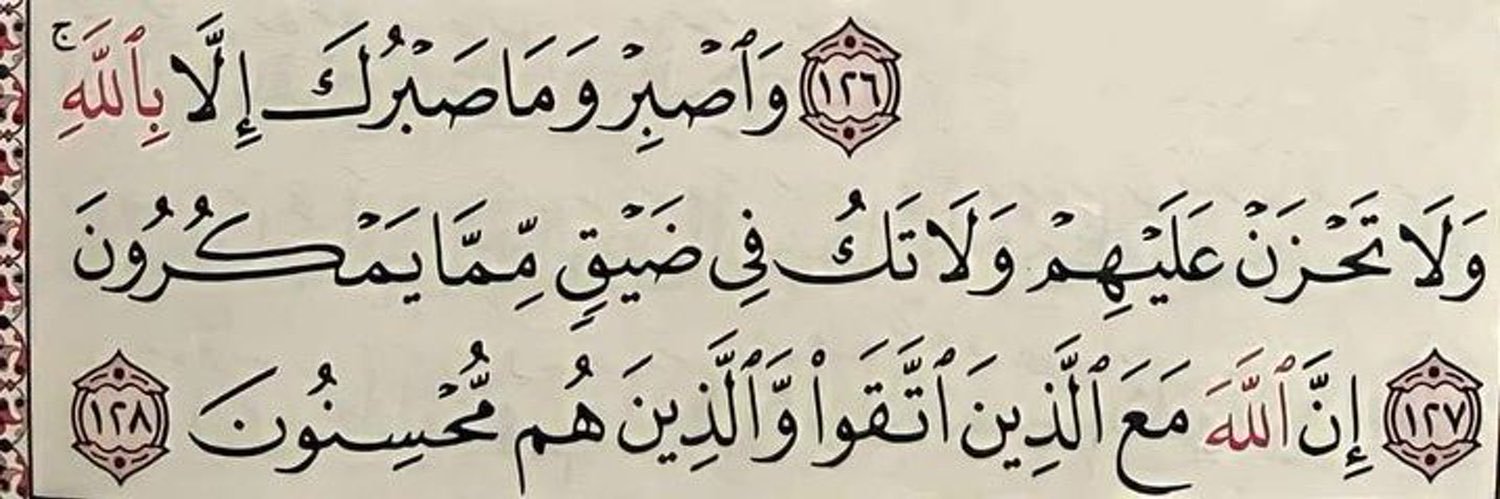 ١٢٦ وَٱصۡبِرۡ وَمَا صَبۡرُكَ إِلَّا بِٱللَّهِۚ
وَلَا تَحۡزَنۡ عَلَيۡهِمۡ وَلَا تَكُ فِي ضَيۡقٖ مِّمَّا يَمۡكُرُونَ
١٢٧ إِنَّ ٱللَّهَ مَعَ ٱلَّذِينَ ٱتَّقَواْ وَّٱلَّذِينَ هُم مُّحۡسِنُونَ ١٢٨